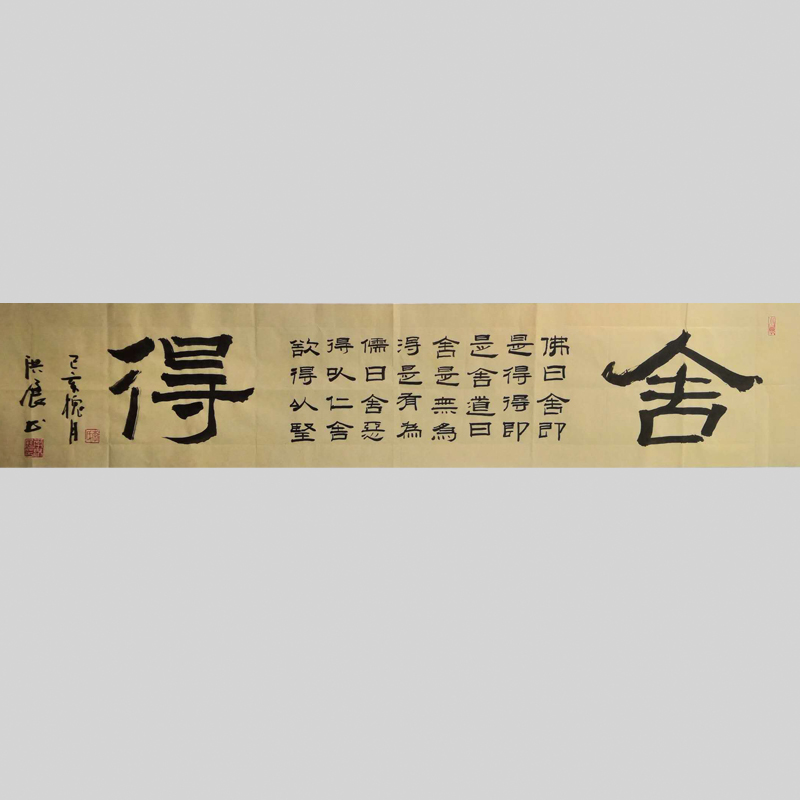 舍
佛曰舍即
是得得即
是舍道曰
舍是無為
得是有為
儒曰舍惡
得以仁舍
欲得以堅
得
己亥槐月
洪展书